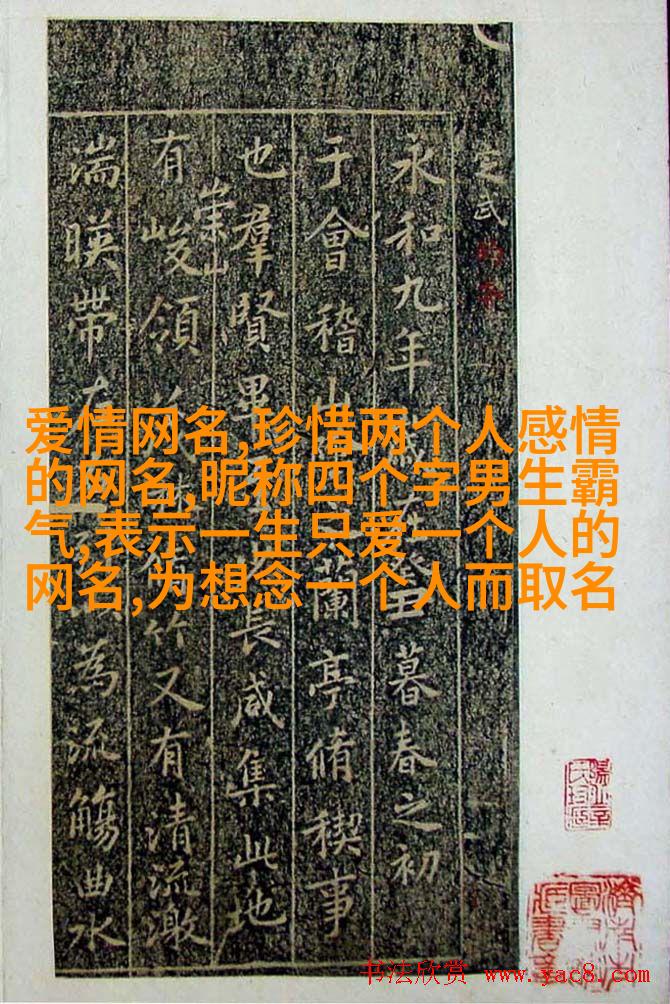 定武
永和九年歲在癸丑暮春之初
于會稽山之蘭亭脩稧事
也羣賢畢長咸集此地
有崇山峻領茂竹又有清流激
湍暎帶左為流觴曲水
爱情网名,珍惜两个人感情
的网名,昵称四个字男生霸
气,表示一生只爱一个人的
网名,为想念一个人而取名
书法欣赏 www.yac8.com